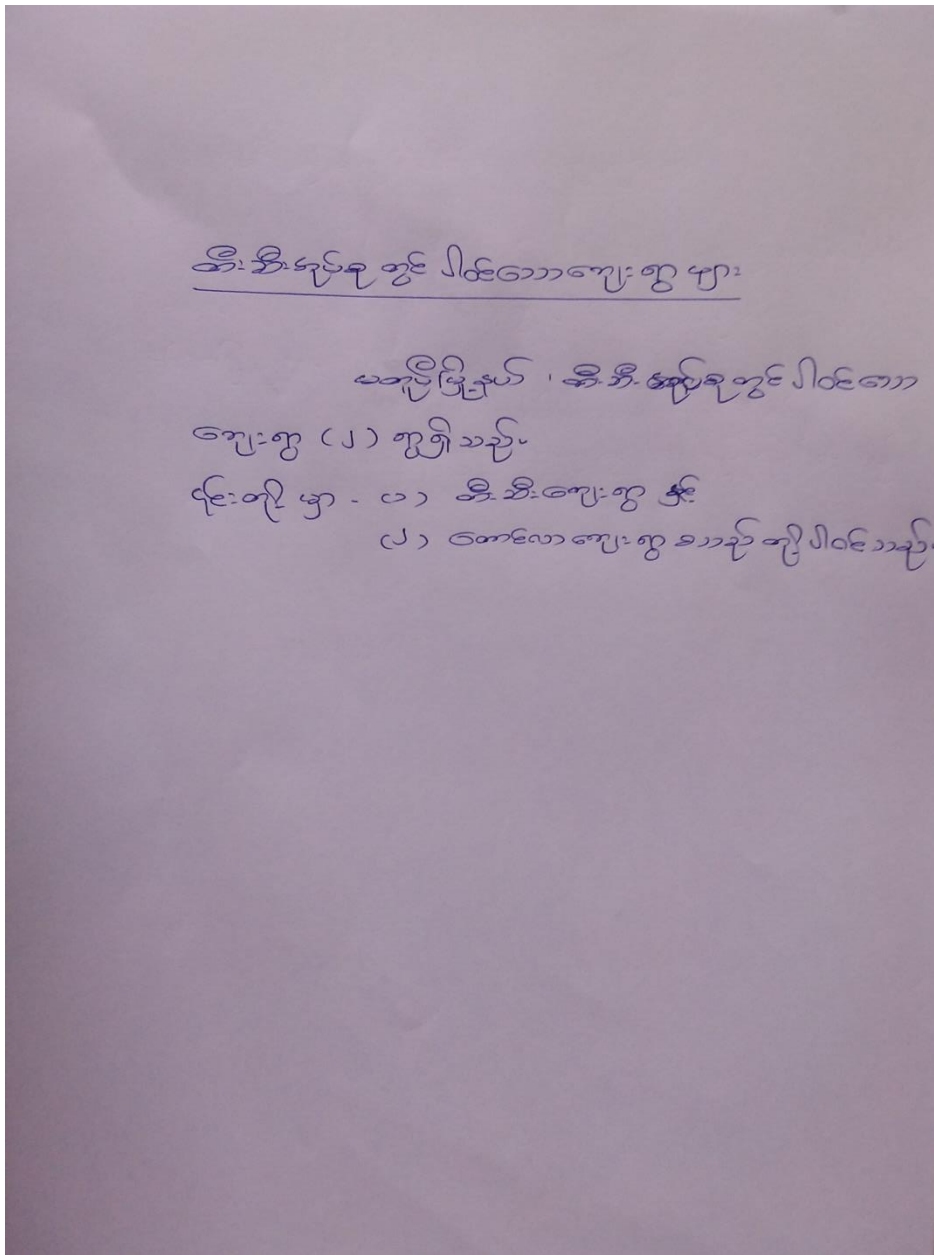 ဆီးဆီးအုပ်စုတွင် ပါဝင်သောကျေးရွာများ
မတူပီမြို့နယ် ၊ ဆီးဆီးအုပ်စုတွင် ပါဝင်သော
ကျေးရွာ (၂) ရွာရှိသည်။
၎င်းတို့မှာ - (၁) ဆီးဆီးကျေးရွာ နှင့်
(၂) တောင်လာကျေးရွာ စသည်တို့ ပါဝင်သည်။